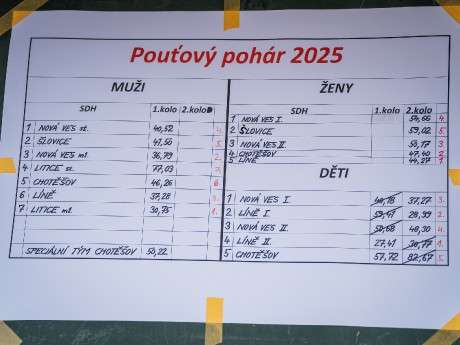 Pouťový pohár 2025
MUŽI
SDH 1.kolo 2.kolo
1 NOVÁ VES st. 40,52 4.
2 ŠLOVICE 41,50 5.
3 NOVÁ VES ml. 36,79 2.
4 LITICE st. 77,03 7.
5 CHOTĚŠOV 46,26 6.
6 LÍNĚ 37,28 3.
7 LITICE ml. 30,75 1.
SPECIÁLNÍ TÝM CHOTĚŠOV 50,22
ŽENY
SDH 1.kolo 2.kolo
1 NOVÁ VES I. 54,66 4.
2 ŠLOVICE 59,02 5.
3 NOVÁ VES II. 50,17 3.
4 CHOTĚŠOV 47,40 2.
5 LÍNĚ 44,27 1.
DĚTI
1 NOVÁ VES I. 40,18 37,27 3.
2 LÍNĚ I. 28,99 2.
3 NOVÁ VES II. 50,68 48,30 4.
4 LÍNĚ II. 27,41 30,77 1.
5 CHOTĚŠOV 57,72 82,67 5.